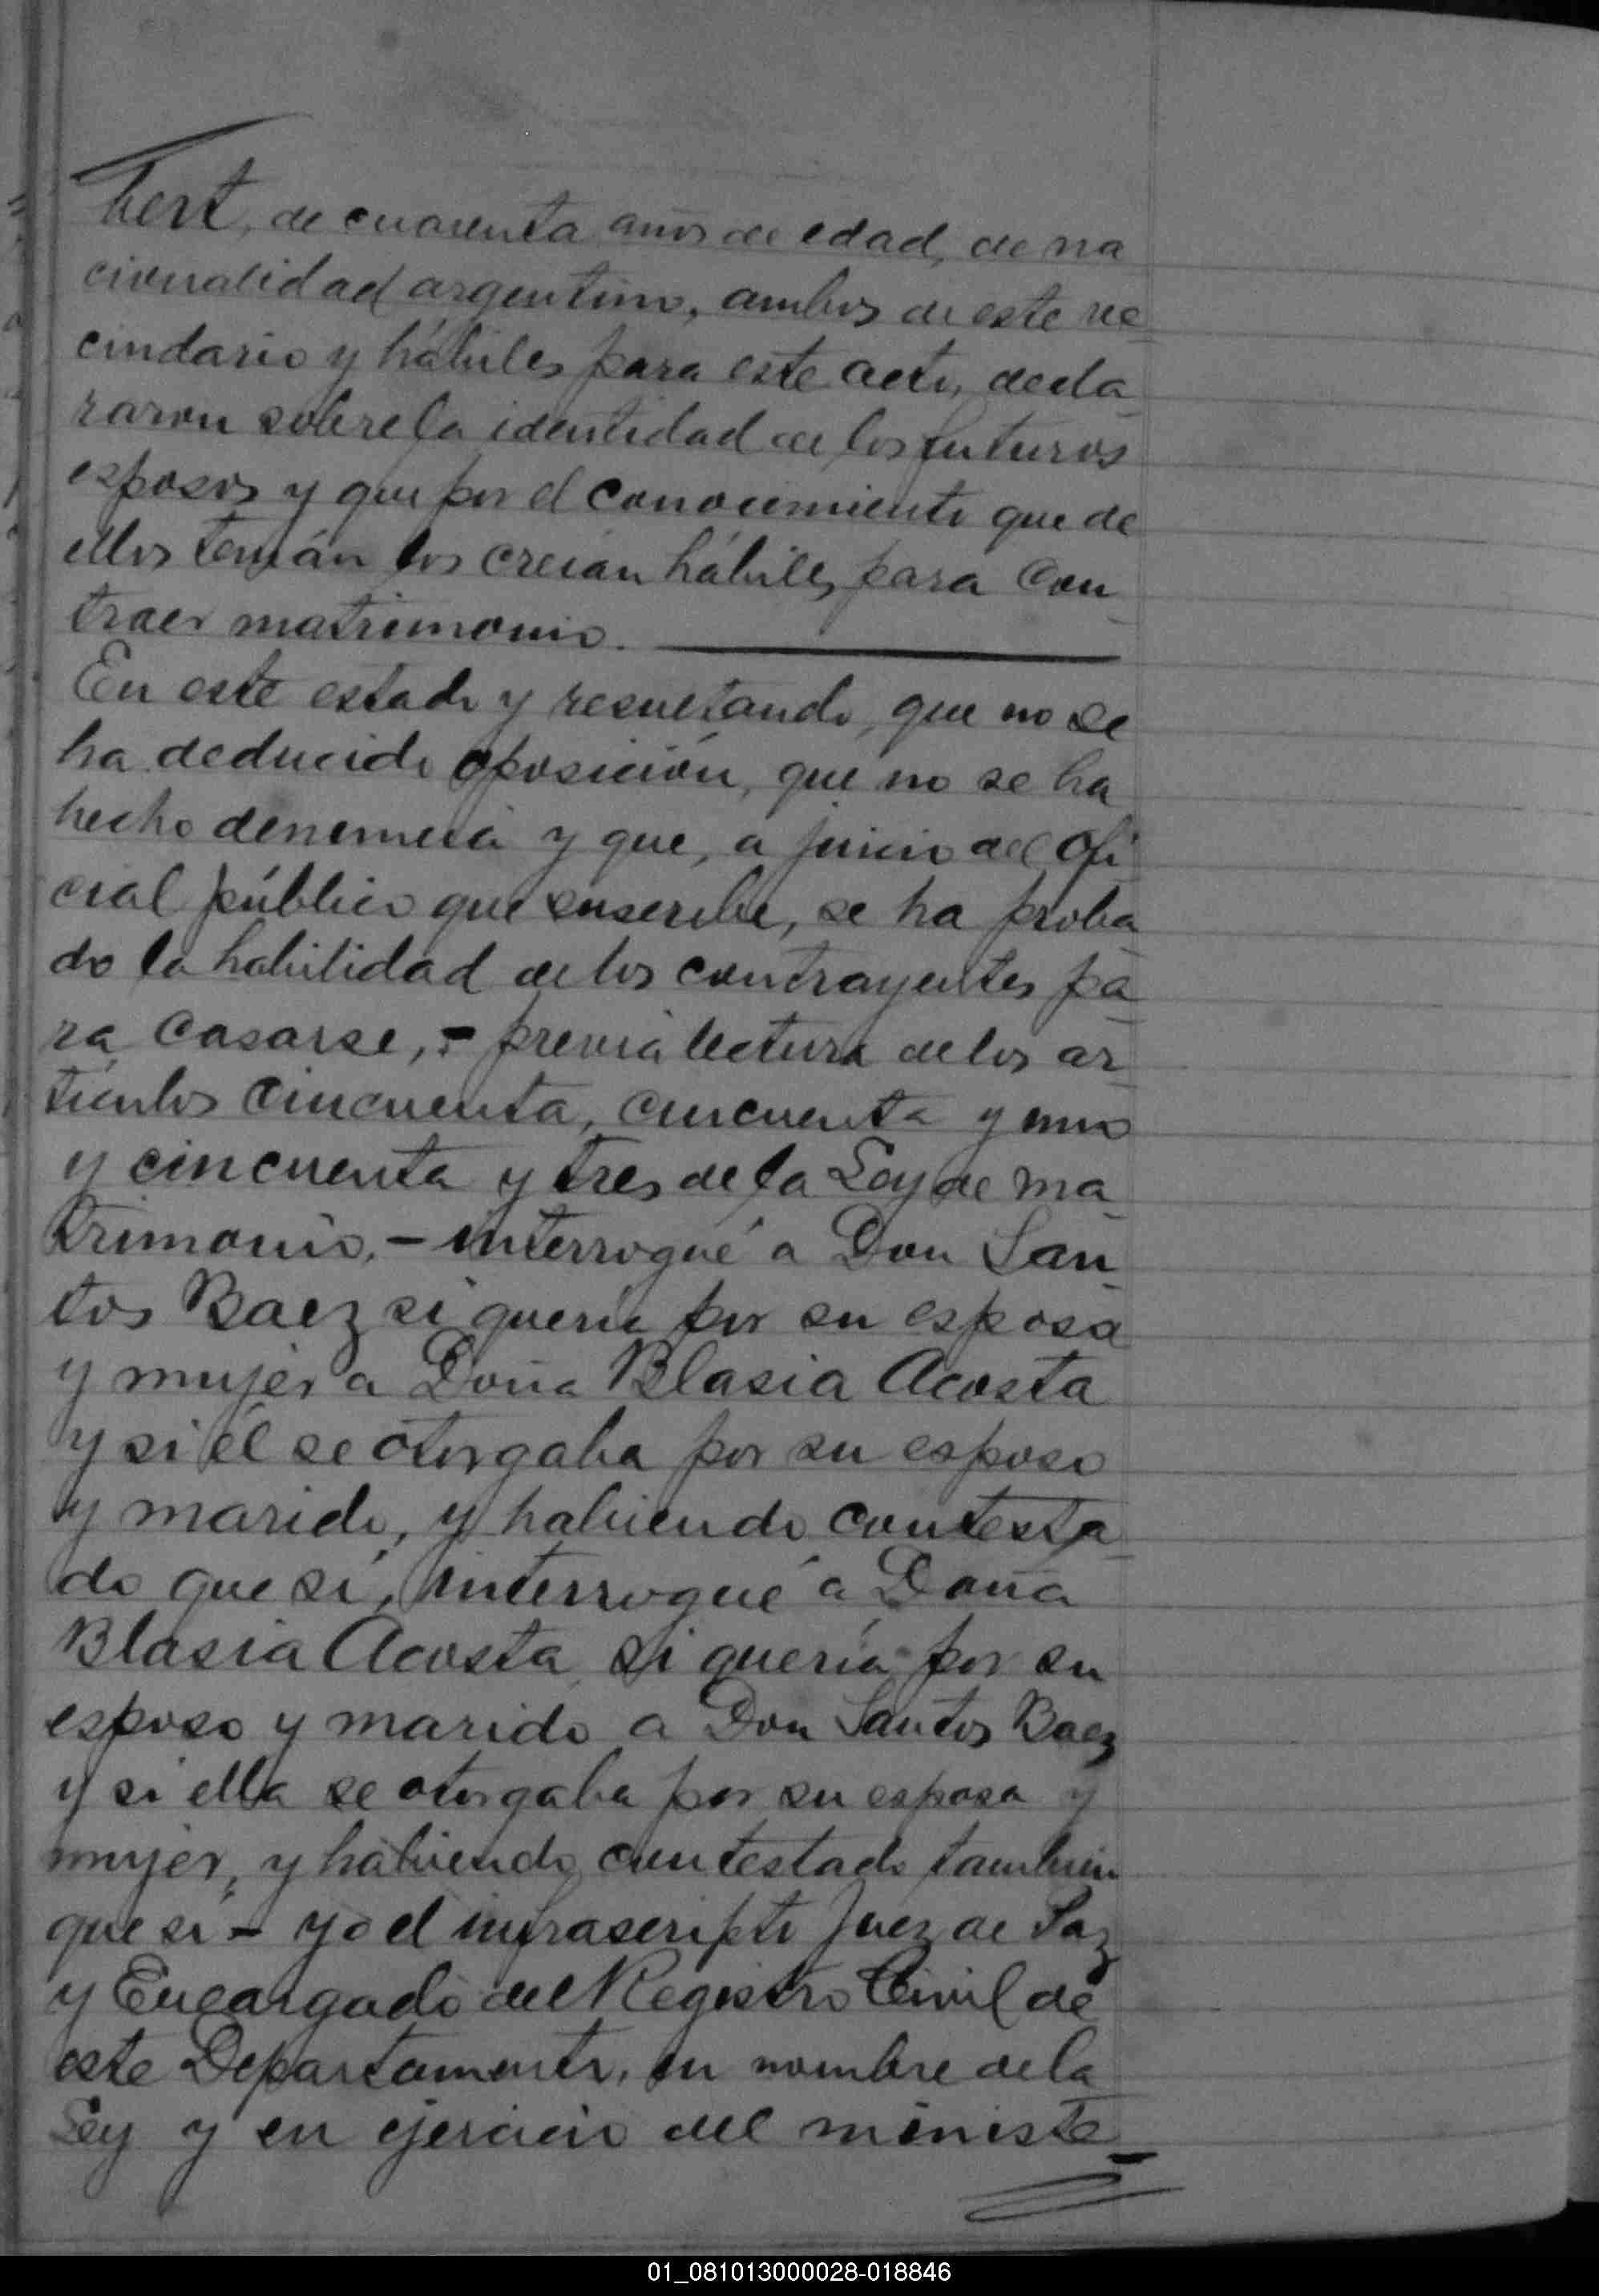 bert, de cuarenta años de edad, de na
cionalidad argentino, ambos de este ve
cindario y hábiles para este acto, decla
raron sobre la identidad de los futuros
esposos y que por el conocimiento que de
ellos tenían los creían hábiles para con
traer matrimonio.
En este estado y resultando, que no se
ha deducido oposición, que no se ha
hecho denuncia y que, a juicio del Ofi
cial público que suscribe, se ha proba
do la habilidad de los contrayentes pa
ra casarse, - previa lectura de los ar
tículos cincuenta, cincuenta y uno
y cincuenta y tres de la Ley de ma
trimonio, - interrogué a Don San
tos Baez si quería por su esposa
y mujer a Doña Blasia Acosta
y si él se otorgaba por su esposo
y marido, y habiendo contesta
do que sí, interrogué a Doña
Blasia Acosta si quería por su
esposo y marido a Don Santos Baez
y si ella se otorgaba por su esposa y
mujer, y habiendo contestado también
que sí - yo el infrascripto Juez de Paz
y Encargado del Registro Civil de
este Departamento, en nombre de la
Ley y en ejercicio del ministe
01_081013000028-018846